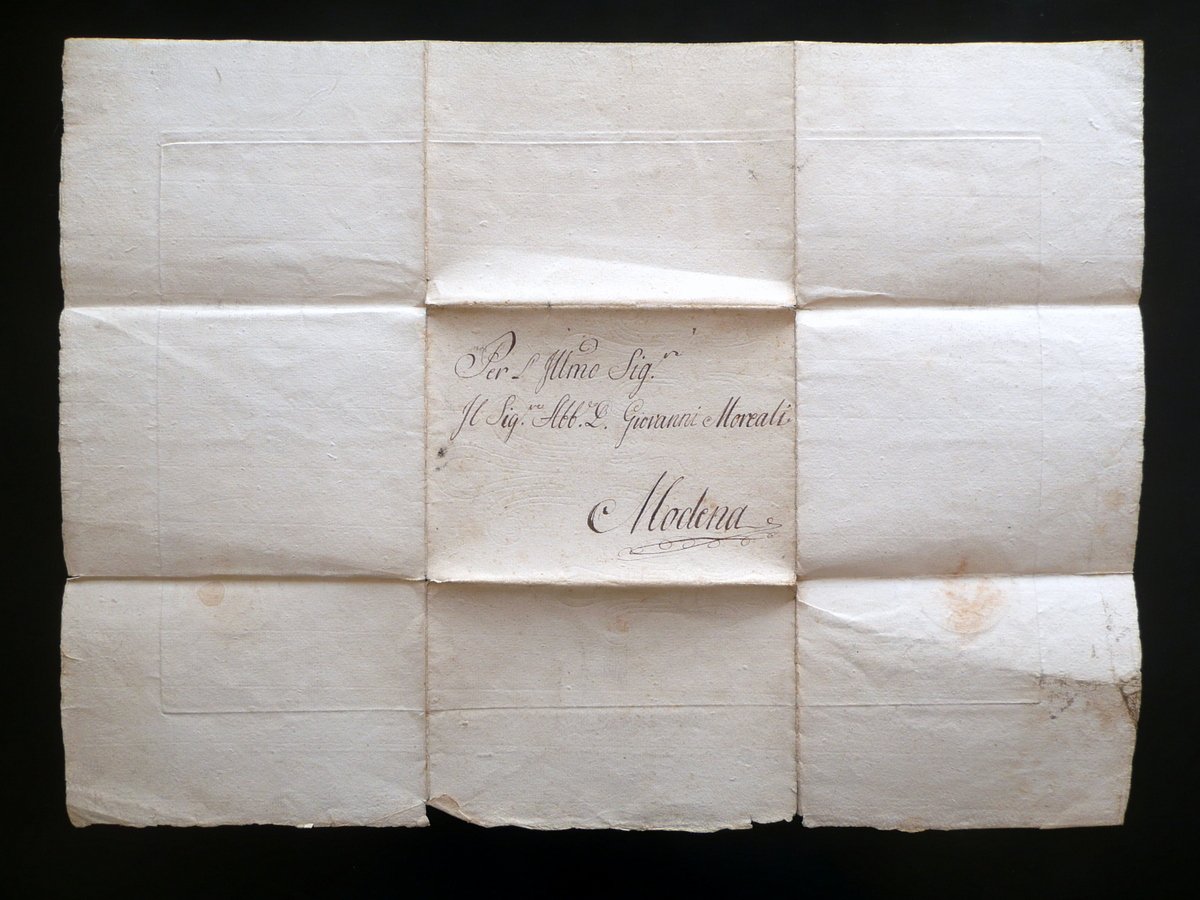 Per L'Illmo Sig.re
Il Sig.re Abb. D. Giovanni Moreali
Modena